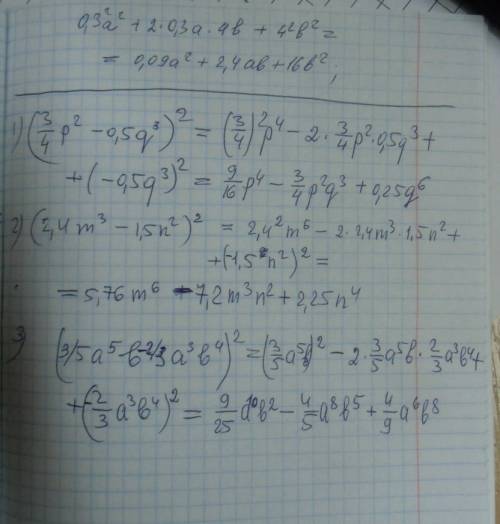 0,3²a² + 2·0,3a·4в + 4²в² =
= 0,09a² + 2,4aв + 16в² ;
1) (3/4 p² − 0,5q³)² = (3/4)² p⁴ − 2·3/4 p²·0,5q³ +
+ (−0,5q³)² = 9/16 p⁴ − 3/4 p²q³ + 0,25q⁶
2) (2,4m³ − 1,5n²)² = 2,4²m⁶ − 2·2,4m³·1,5n² +
+ (−1,5n²)² =
= 5,76m⁶ − 7,2m³n² + 2,25n⁴
3) (3/5a⁵в − 2/3a³в⁴)² = (3/5 a⁵в)² − 2·3/5 a⁵в·2/3 a³в⁴ +
+ (−2/3 a³в⁴)² = 9/25 a¹⁰в² − 4/5 a⁸в⁵ + 4/9 a⁶в⁸